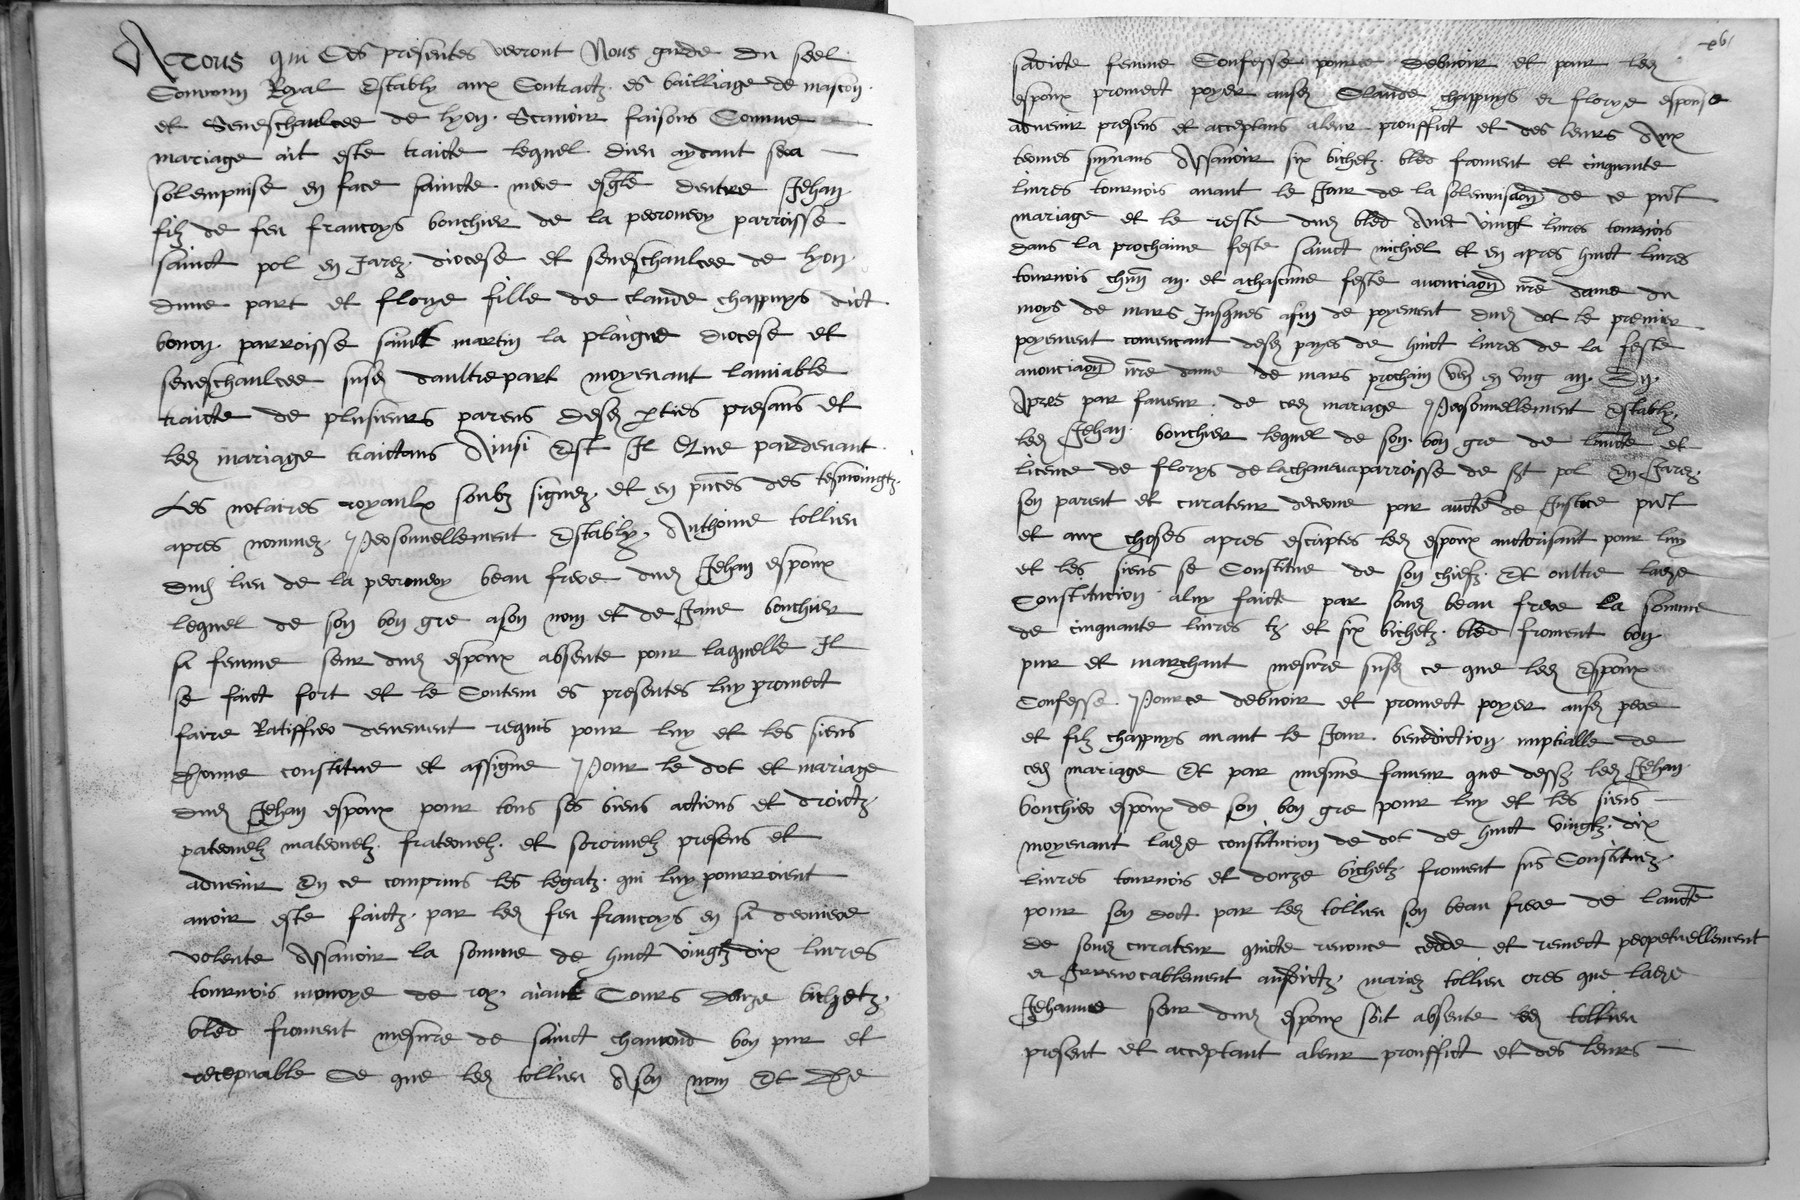 A Tous qui Ces presentes verront Nous garde du seel
Commun Royal Estably aux Contractz es bailliage de mascon
et Seneschaulcee de lyon Scavoir faisons Comme
mariage ait este traicte lequel dieu aydant sera
solempnise en face saincte mere esgle dentre Jehan
filz de feu francoys bouchier de la perronery parroisse
sainct pol en Jarez diocese et seneschaulcee de lyon
dune part et florye fille de claude chappuys dict
bonon parroisse sainct martin la plaigne diocese et
seneschaulcee susd daultre part moyenant lamiable
traicte de plusieurs parens desd parties presans et
led mariage traictans Ainsi Est Il Que pardevant
Les notaires royaulx soubz signez et en pnces des tesmoingtz
apres nommez Personnellement Estably Anthoine tollieu
dud lieu de la perronery beau frere dud Jehan espoux
lequel de son bon gre a son nom et de Jane bouchier
sa femme seur dud espoux absente pour laquelle Il
se faict fort et le Contenu es presentes luy promect
faire Ratiffier deuement requis pour luy et les siens
Donne constitue et assigne Pour le dot et mariage
dud Jehan espoux pour tous ses biens actions et droictz
paternelz maternelz fraternelz et sororinelz presens et
advenir En ce comprins les legatz qui luy pourroient
avoir este faictz par led feu francoys en sa derniere
volente Assavoir la somme de huict vingtz dix livres
tournois monoye de roy aiant Cours douze bichetz
bled froment mesure de sainct chamond bon pur et
recepvable Ce que led tollieu A son nom Et De
sadicte femme Confesse pour ce Debvoir et pour led
espoux promect poyer ausd Claude chappuys et florye espouse
advenir presens et acceptans a leur prouffict et des leurs Aux
termes suyvans Assavoir six bichetz bled froment et cinquante
livres tournois avant le Jour de la solemnisaon de ce pnt
mariage et le reste dud bled Avec vingt livres tournois
dans la prochaine feste sainct michiel et en apres huict livres
tournois chun an et a chascune feste anonciaon nre dame du
moys de mars Jusques a fin de poyement dud dot le premier
poyement comencant desd payes de huict livres de la feste
anonciaon nre dame de mars prochain ven en ung an En
Apres par faveur de ced mariage Personnellement Estably
led Jehan bouchier lequel de son bon gre de laucte et
licence de florys de lachaneva parroisse de sct pol En Jarez
son parent et curateur decerne par aucte de Justice pnt
et aux choses apres escriptes led espoux auctorisant pour luy
et les siens se Constitue de son chiefz Et oultre ladce
Constitucion a luy faicte par sond beau frere La somme
de cinquante livres tz et six bichetz bled froment bon
pur et marchant mesure susd ce que led Espoux
Confesse Pour ce debvoir et promect poyer ausd pere
et filz chappuys avant le Jour benediction nuptialle de
ced mariage Et par mesme faveur que dessz led Jehan
bouchier espoux de son bon gre pour luy et les siens
moyenant ladce constitucion de dot de huict vingtz dix
livres tournois et douze bichetz froment sus Constituez
pour son doct par led tollieu son beau frere de laucte
de sond curateur quicte renonce cedde et remect perpetuellement
et Irrevocablement ausdictz mariez tollieu ores que ladce
Jehanne seur dud espoux soit absente led tollieu
present et acceptant a leur prouffict et des leurs